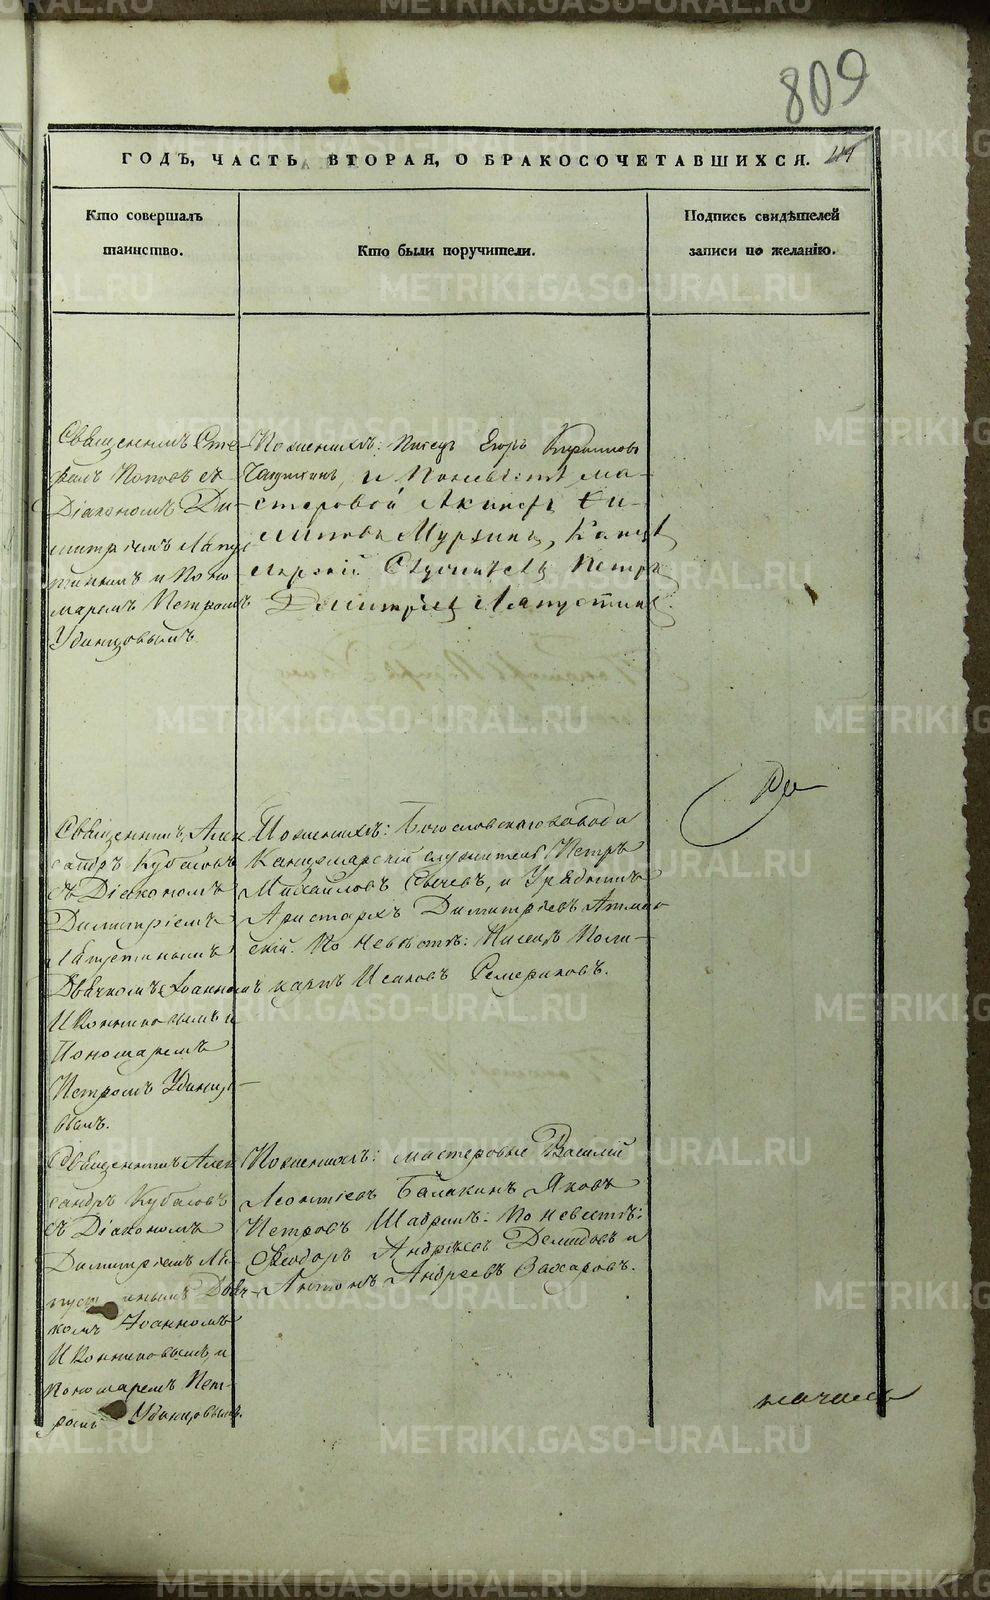 809
ГОДЪ, ЧАСТЬ ВТОРАЯ, О БРАКОСОЧЕТАВШИХСЯ.
Кто совершалъ
таинство.
Кто были поручители.
Подпись свидѣтелей
записи по желанію.
Священникъ Сте-
фанъ Поповъ съ
Діакономъ Ди-
митріемъ Лапус-
тинымъ и Поно-
маремъ Петромъ
Удинцовымъ
По женихѣ: Писецъ Егоръ
и По невѣстѣ ма-
стеровой Акинфъ Фи-
липповъ Мурзинъ, Канце-
лярскій Служитель Петръ
Димитріевъ Лапустинъ.
Священникъ Алек
сандръ Кубасовъ
съ Діакономъ
Димитріемъ
Лапустинымъ
Дьячкомъ Іоанномъ
Иконниковымъ и
Пономаремъ
Петромъ Удинцо-
вымъ.
По женихѣ: Богословскаго завода
Канцелярскій служитель Петръ
Михайловъ Сычевъ, и Урядникъ
Аристархъ Димитріевъ
По невѣстѣ: Писецъ Поли-
карпъ Исаковъ Семериковъ.
Священникъ Алек
сандръ Кубасовъ
съ Діакономъ
Димитріемъ Ла-
пустинымъ Дьяч-
комъ Іоанномъ
Иконниковымъ и
пономаремъ Пет-
ромъ Удинцовымъ.
По женихѣ: мастеровые Василій
Леонтіевъ Балакинъ Яковъ
Петровъ Шадринъ: По невѣстѣ:
Ѳеодоръ Андреевъ Демидовъ и
Антонъ Андреевъ Захаровъ.
METRIKI.GASO-URAL.RU